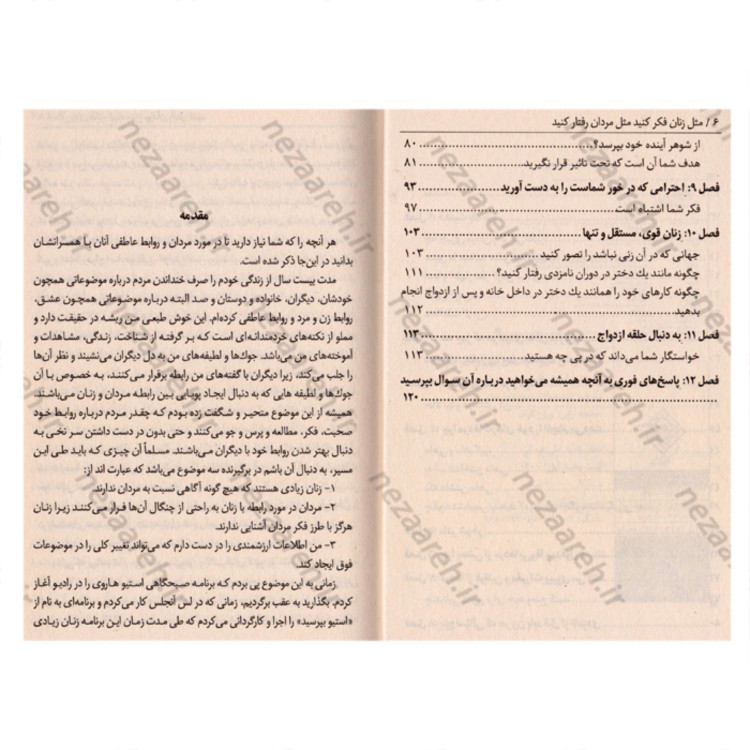 ۶ / مثل زنان فکر کنید مثل مردان رفتار کنید
از شوهر آینده خود بپرسد؟ ۸۰
هدف شما آن است که تحت تاثیر قرار نگیرید ۸۱
فصل ۹: احترامی که در خور شماست را به دست آورید ۹۳
فکر شما اشتباه است ۹۷
فصل ۱۰: زنان قوی، مستقل و تنها ۱۰۳
جهانی که در آن زنی نباشد را تصور کنید ۱۰۳
چگونه مانند یك دختر در دوران نامزدی رفتار کنید؟ ۱۱۱
چگونه کارهای خود را همانند یك دختر در داخل خانه و پس از ازدواج انجام
بدهید ۱۱۲
فصل ۱۱: به دنبال حلقه ازدواج ۱۱۳
خواستگار شما می‌داند که در پی چه هستید ۱۱۳
فصل ۱۲: پاسخ‌های فوری به آنچه همیشه می‌خواهید درباره آن سوال بپرسید
۱۲۰
مقدمه
هر آنچه را که شما نیاز دارید تا در مورد مردان و روابط عاطفی آنان با همسرانشان
بدانید در این‌جا ذکر شده است.
مدت بیست سال از زندگی خودم را صرف خنداندن مردم درباره موضوعاتی همچون
خودشان، دیگران، خانواده و دوستان و صد البته درباره موضوعاتی همچون عشق،
روابط زن و مرد و روابط عاطفی کرده‌ام. این خوش طبعی من ریشه در حقیقت دارد و
مملو از نکته‌های خردمندانه‌ای است که بر گرفته از شناخت، زندگی، مشاهدات و
آموخته‌های من می‌باشد. جوك‌ها و لطیفه‌های من به دل دیگران می‌نشیند و نظر آن‌ها
را جلب می‌کند، زیرا دیگران با گفته‌های من رابطه برقرار می‌کنند، به خصوص با آن
جوك‌ها و لطیفه هایی که به دنبال ایجاد پویایی بین رابطه مردان و زنان می‌باشند.
همیشه از این موضوع متحیر و شگفت زده بودم که چقدر مردم درباره روابط خود
صحبت، فکر، مطالعه و پرس و جو می‌کنند و حتی بدون در دست داشتن سر نخی به
دنبال بهتر شدن روابط خود با دیگران می‌باشند. مسلماً آن چیزی که باید طی این
مسیر، به دنبال آن باشم در برگیرنده سه موضوع می‌باشد که عبارت اند از:
۱- زنان زیادی هستند که هیچ گونه آگاهی نسبت به مردان ندارند.
۲- مردان در مورد رابطه با زنان به راحتی از چنگال آن‌ها فرار می‌کنند زیرا زنان
هرگز با طرز فکر مردان آشنایی ندارند.
۳- من اطلاعات ارزشمندی را در دست دارم که می‌تواند تغییر کلی را در موضوعات
فوق ایجاد کند.
زمانی به این موضوع پی بردم که برنامه صبحگاهی استیو هاروی را در رادیو آغاز
کردم. بگذارید به عقب برگردیم، زمانی که در لس آنجلس کار می‌کردم و برنامه‌ای به نام از
«استیو بپرسید» را اجرا و کارگردانی می‌کردم که طی مدت زمان این برنامه زنان زیادی
nezaareh.ir
nezaareh.ir
nezaareh.ir
nezaareh.ir
nezaareh.ir
nezaareh.ir